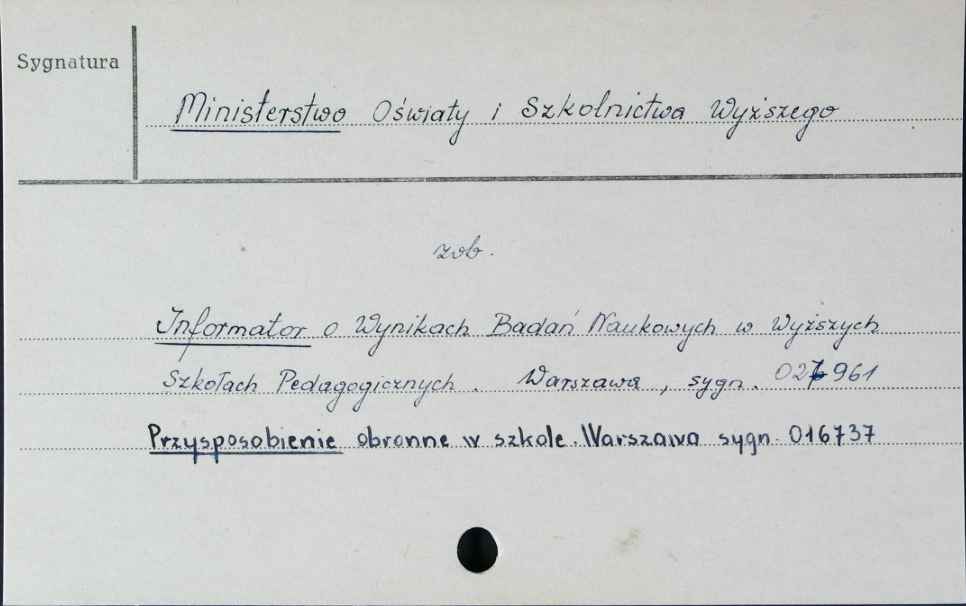 Sygnatura
Ministerstwo Oświaty i Szkolnictwa Wyższego
zob.
Informator o Wynikach Badań Naukowych w Wyższych
Szkołach Pedagogicznych. Warszawa, sygn. 027961
Przysposobienie obronne w szkole. Warszawa sygn. 016737